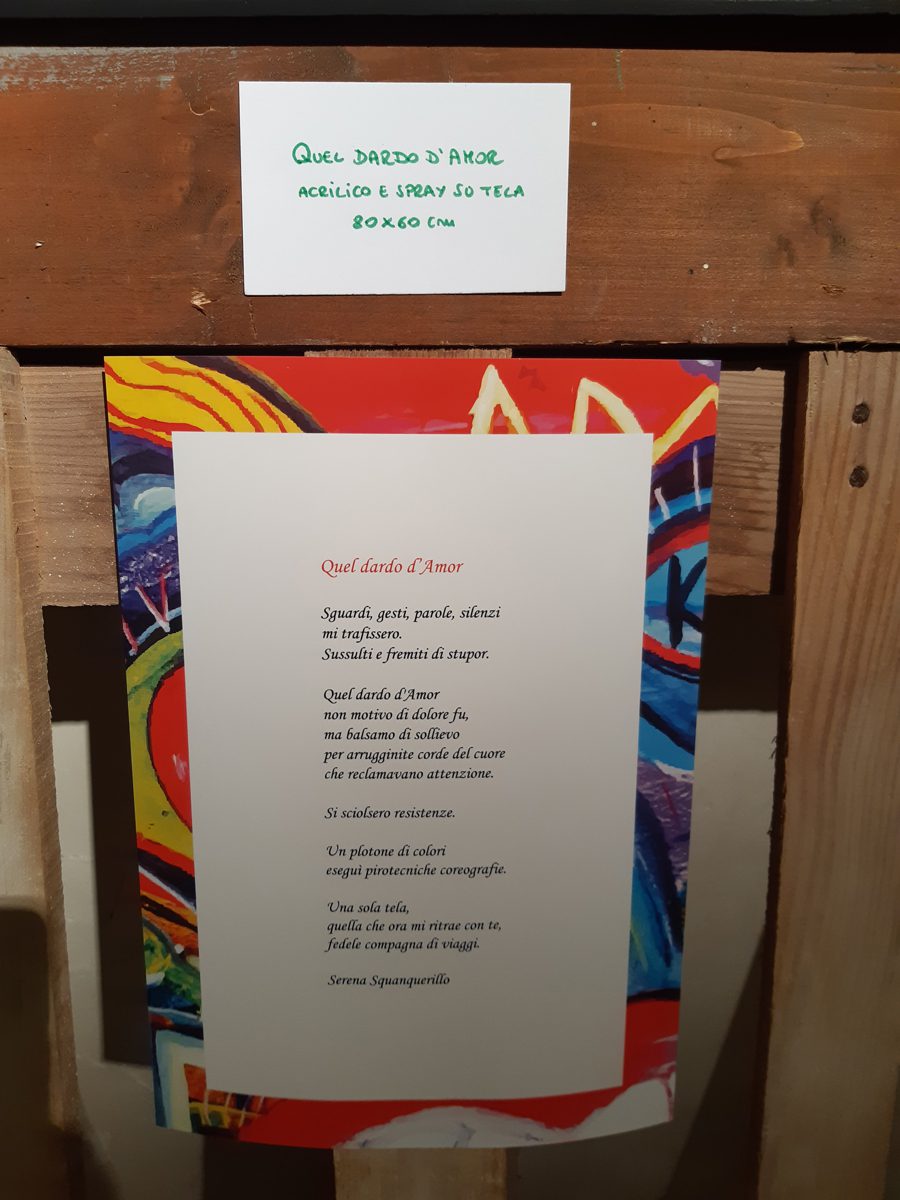 QUEL DARDO D'AMOR
ACRILICO E SPRAY SU TELA
80X60 cm
Quel dardo d'Amor
Sguardi, gesti, parole, silenzi
mi trafissero.
Sussulti e fremiti di stupor.
Quel dardo d'Amor
non motivo di dolore fu,
ma balsamo di sollievo
per arrugginite corde del cuore
che reclamavano attenzione.
Si sciolsero resistenze.
Un plotone di colori
eseguì pirotecniche coreografie.
Una sola tela,
quella che ora mi ritrae con te,
fedele compagna di viaggi.
Serena Squanquerillo
K